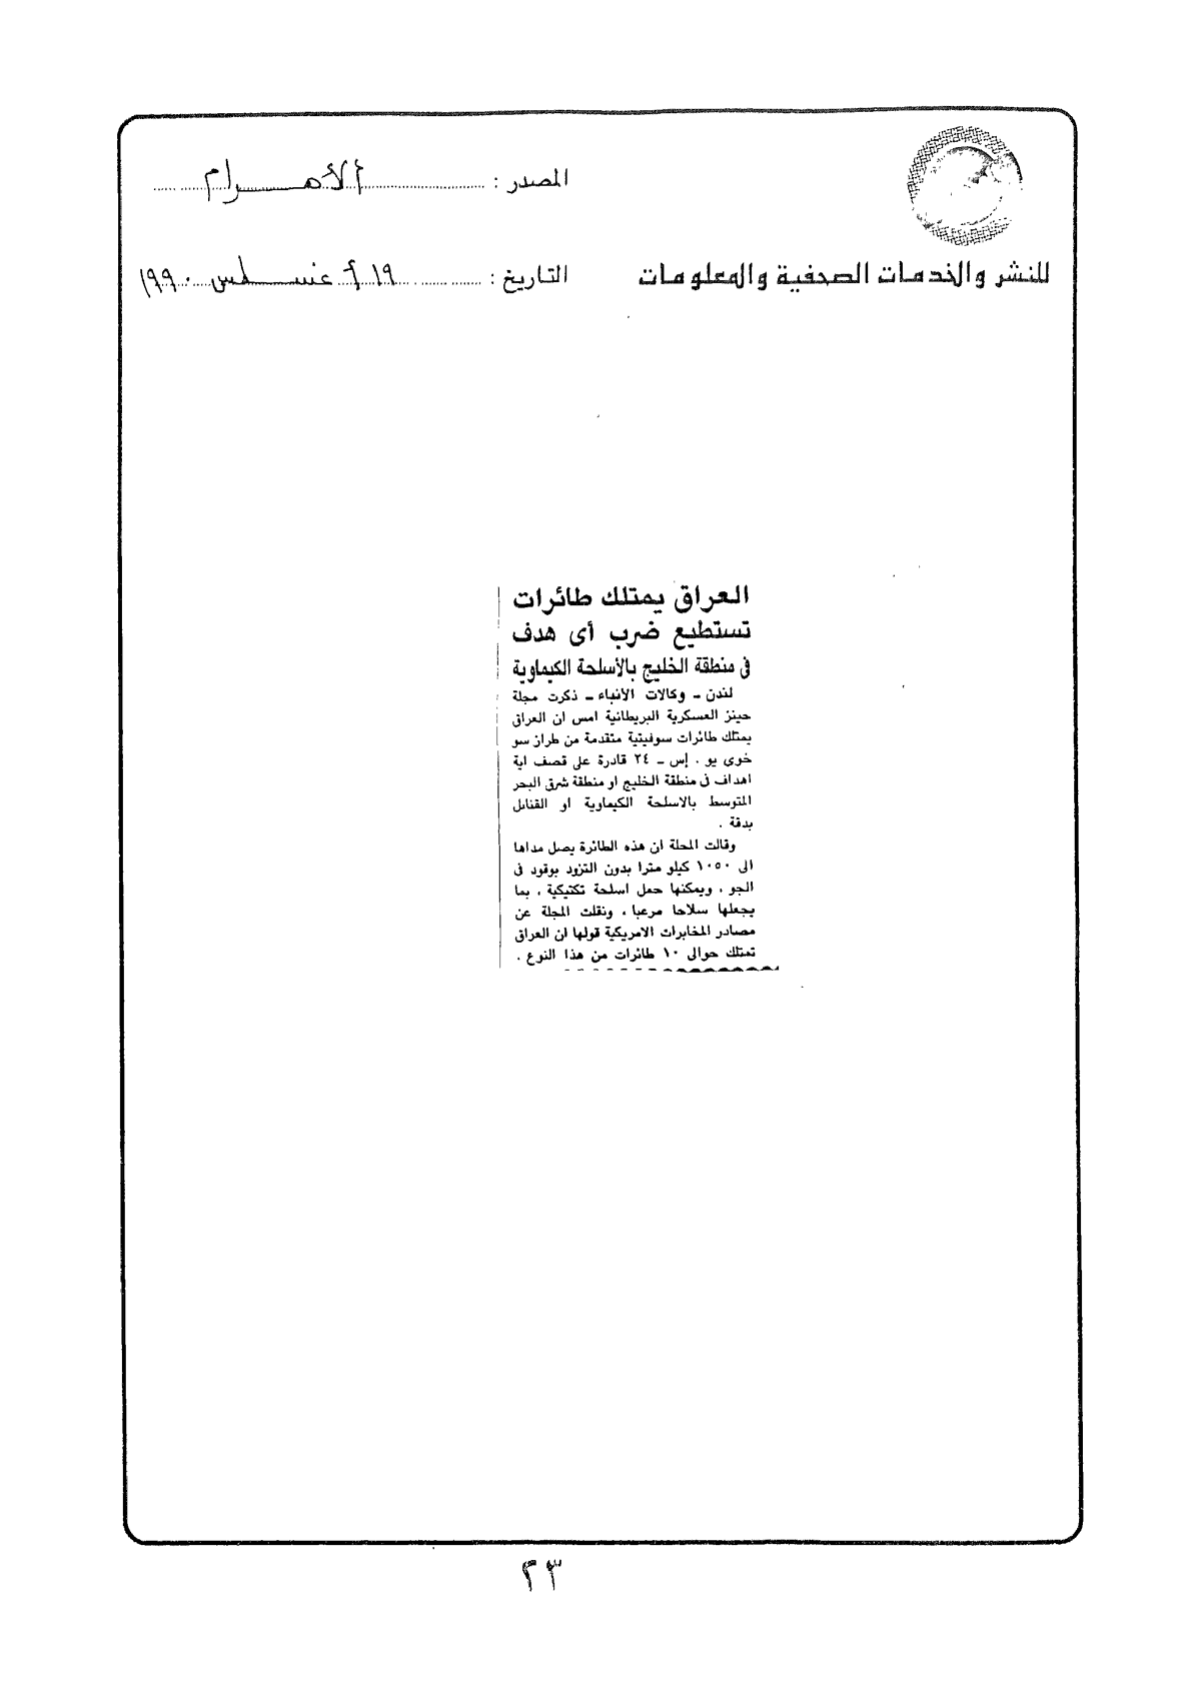 المصدر : الأهرام
للنشر والخدمات الصحفية والمعلومات
التاريخ : ١٩ أغسطس ١٩٩٠
العراق يمتلك طائرات
تستطيع ضرب أى هدف
فى منطقة الخليج بالأسلحة الكيماوية
لندن ـ وكالات الأنباء ـ ذكرت مجلة
جينز العسكرية البريطانية امس ان العراق
يمتلك طائرات سوفيتية متقدمة من طراز سو
خوى يو . إس ـ ٢٤ قادرة على قصف اية
اهداف فى منطقة الخليج او منطقة شرق البحر
المتوسط بالاسلحة الكيماوية او القنابل
بدقة .
وقالت المجلة ان هذه الطائرة يصل مداها
الى ١٠٥٠ كيلو مترا بدون التزود بوقود فى
الجو ، ويمكنها حمل اسلحة تكتيكية ، بما
يجعلها سلاحا مرعبا ، ونقلت المجلة عن
مصادر المخابرات الامريكية قولها ان العراق
تمتلك حوالى ١٠ طائرات من هذا النوع .
٢٣